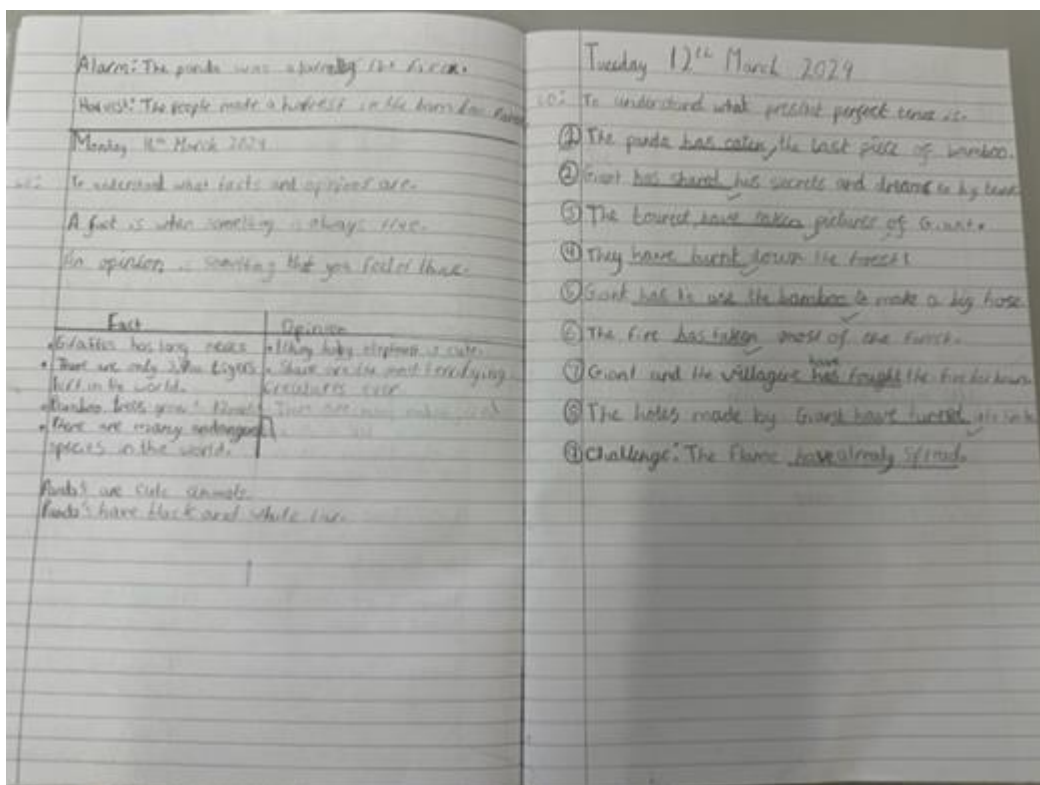 Alarm: The panda was alarming the
Harvest: The people made a harvest in the
Monday 11th March 2024
To understand what facts and opinions are.
A fact is when something is always true.
An opinion is something that you feel or think.
Fact
Opinion
• Giraffes has long necks
• There are only tigers
left in the world.
• There are many endangered
species in the world.
baby elephant is cute.
are the most terrifying
creatures ever
Panda's are cute animals.
Panda's have black and white fur.
Tuesday 12th March 2024
LO: To understand what present perfect tense is.
① The panda has eaten the last piece of bamboo.
② Giant has shared his secrets and dreams
③ The tourist have taken pictures of Giant.
④ They have burnt down the forest
⑤ Giant has to use the bamboo to make a big hose
⑥ The fire has taken most of the forest.
have
⑦ Giant and the villagers has fought the fire for hours.
⑧ The holes made by Giant have turned
⑨ Challenge: The flame have already spread.